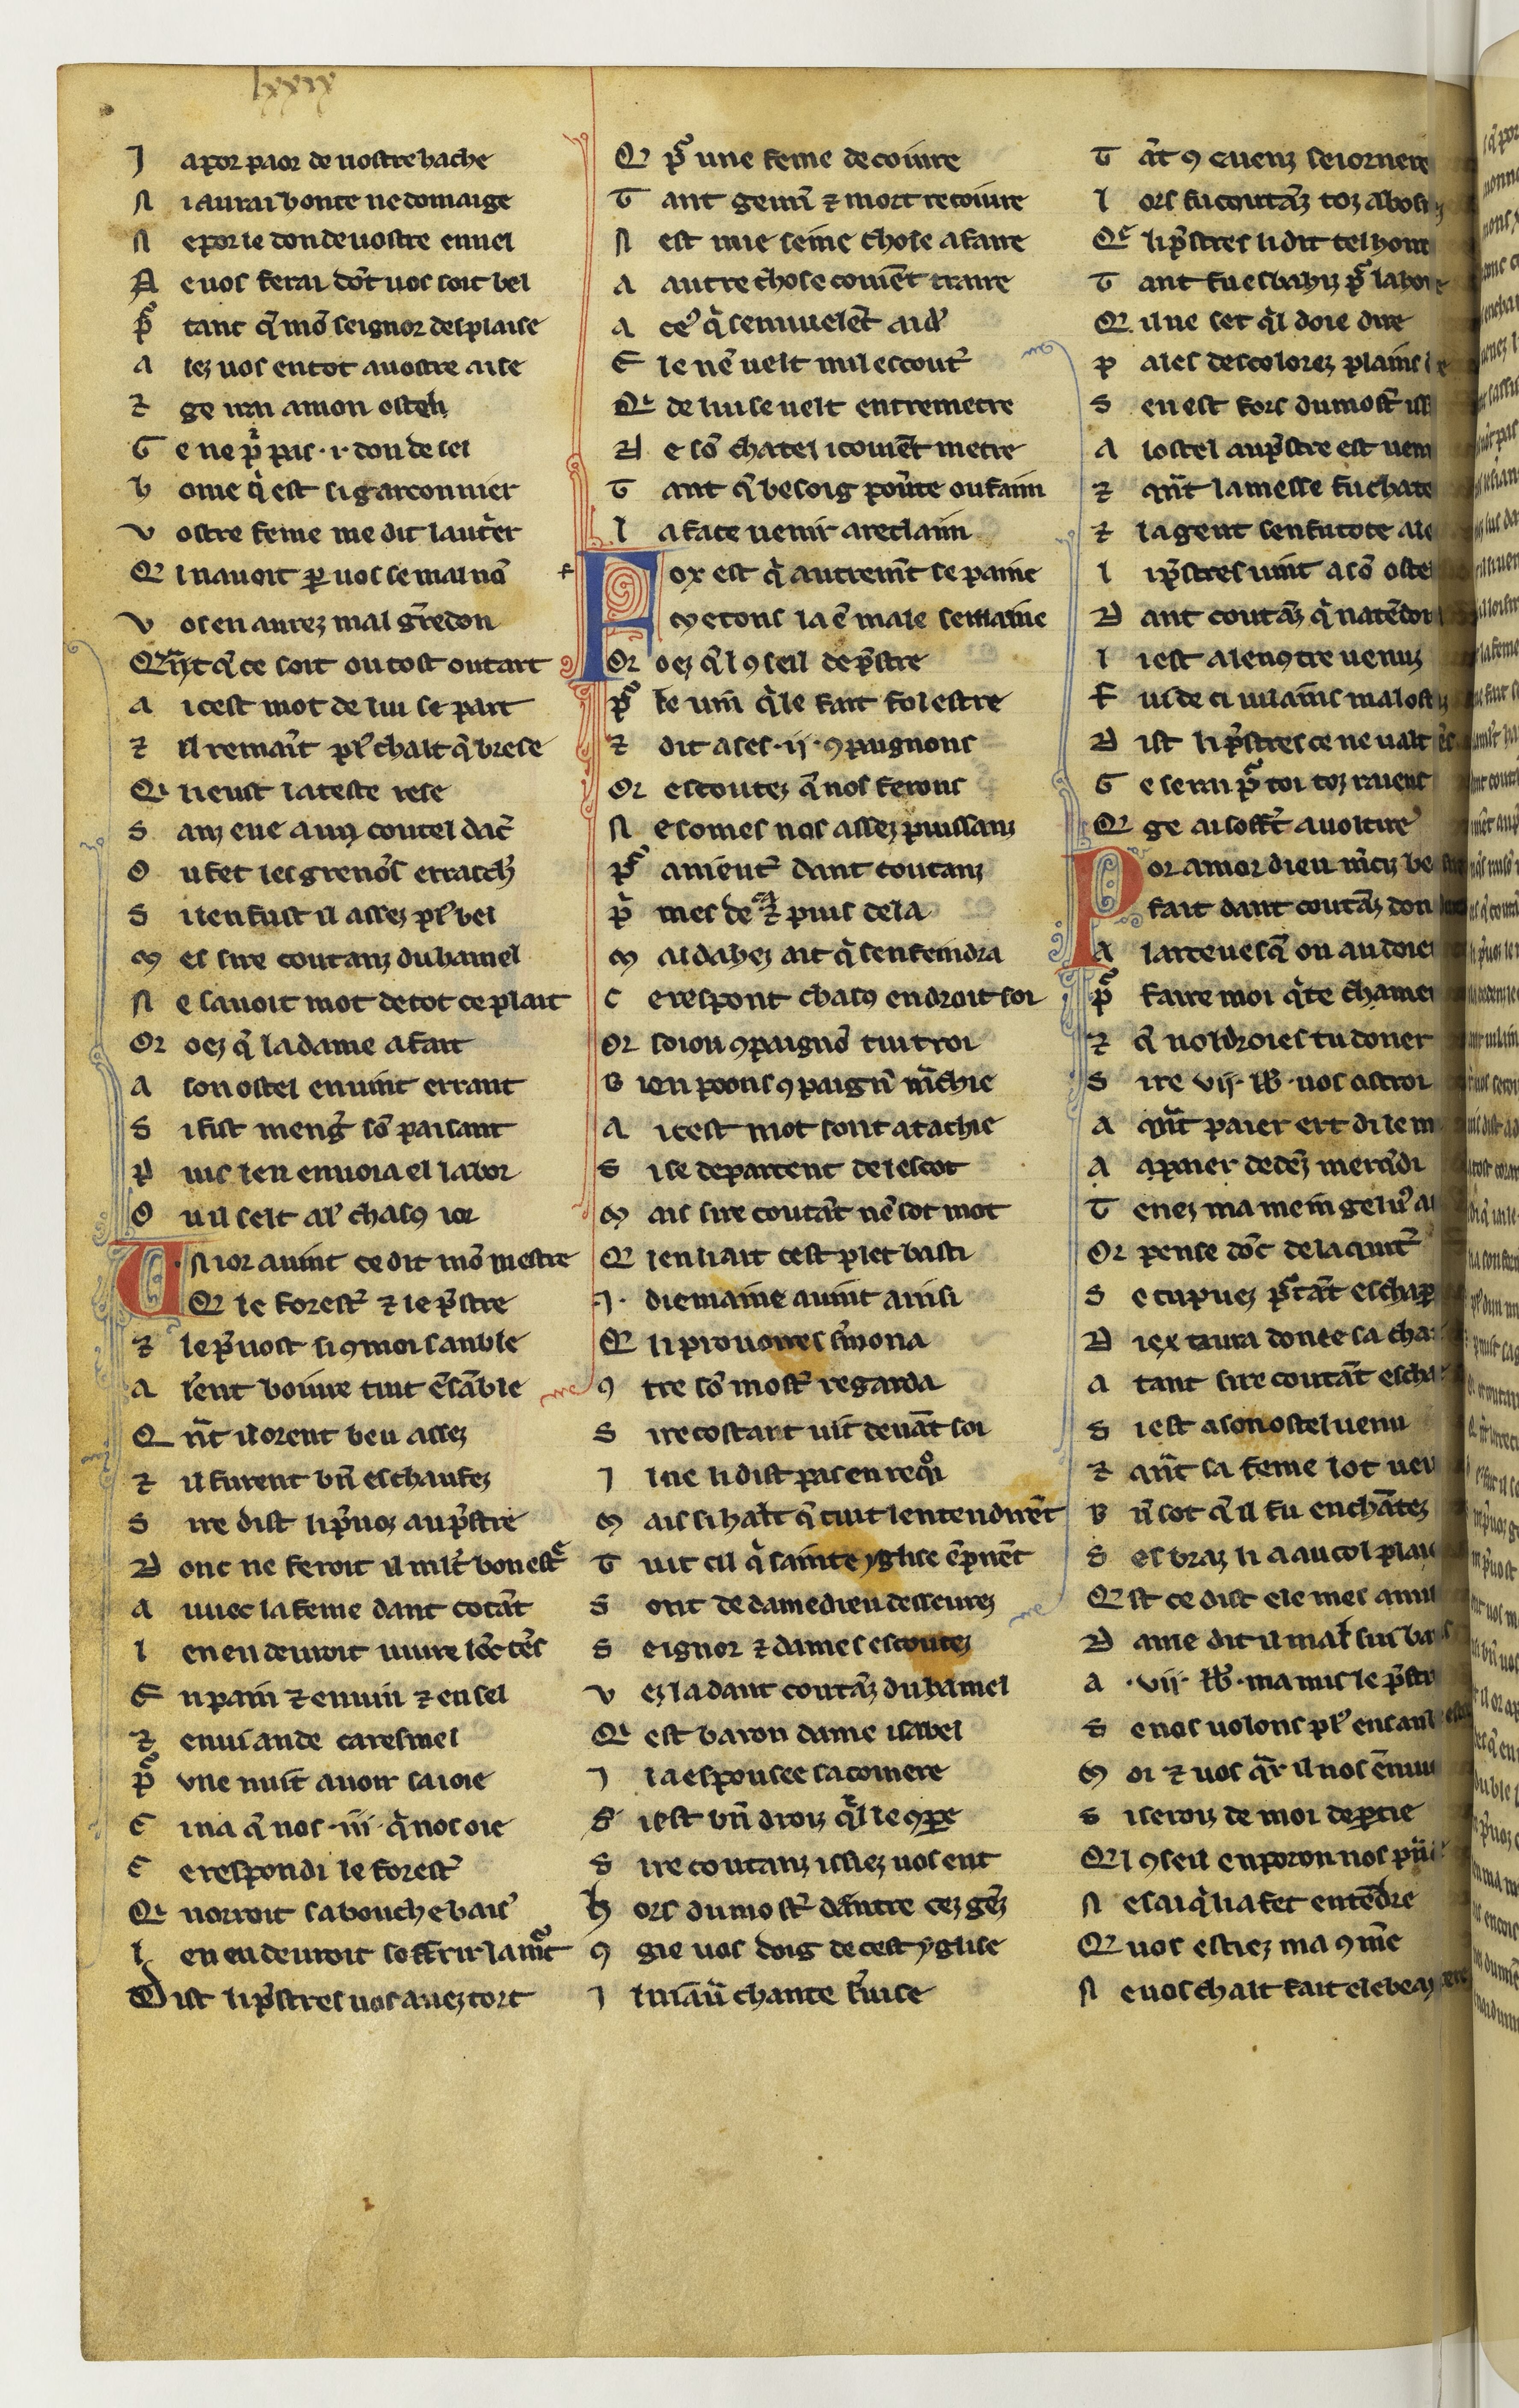 lxxix
J a por paor de uostre hache
N i aurai honte ne domaige
N e por le don de uostre enuel
A e uos ferai dōt uos soit bel
p̄ tant q̄ mō seignor desplaise
A lez uos en tot a uostre aise
⁊ ge uai a mon ostel
G e ne p̄r pas ·i· don de sel
h ome q̇ est si garconnier
V ostre feme me dit lautrer
Q i nauoit p̲ uos se mal nō
V os en aurez mal gr̄edon
Qn̄t q̄ ce soit ou tost ou tart
A icest mot de lui se part
⁊ il remaīt pl̕ chalt q̄ brese
Qi li eust la teste rese
S anz eue a un coutel dac̄
O u fet les grenōs errachr̄
S i len fust il assez pl̕ bel
M es sire coutanz du hamel
N e sauoit mot de tot ce plait
Or oez q̄ la dame a fait
A son ostel en uint errant
S i fist meng̕ sō paisant
P uis len enuoia el labor
O u il selt al̕ chascꝰ ior
U n ior auint ce dit mō mestre
Qe le forest̕ ⁊ le p̄stre
⁊ le p̄uost si ꝯ moi sanble
A l̕ent boiure tuit ēsāble
Q n̄t il orent beu assez
⁊ il furent bn̄ eschaufez
S ire dist li p̄uoz au p̄stre
D onc ne feroit il mlt̄ bon est̄
A uuec la feme dant cotāt
L en en deuroit uiure lōc tēs
E n pain ⁊ en uin ⁊ en sel
⁊ en uiande caresmel
p̄ vne nuit auoir sa ioie
C i na q̄ nos ·iii· q̇ nos oie
C e respondi le forest̕
Qi uorroit sa bouche bais̕
L en en deuroit soffrir la mort
Dist li p̄stres uos auez tort
Qi p̄ une feme decoiure
T ant gemī ⁊ mort recoiure
N est mie seine chose a faire
A autre chose couiēt traire
A ce q̇ sen uuelēt aid̕
E le nē uelt nul escout̕
Qi de lui se uelt entremetre
D e sō chatel i couiēt metre
T ant q̄ besoig pou̕te ou faim
L a face uenir a reclaim
F ox est q̇ autremn̄t se paine
M etons la ē male semaine
Or oez q̄l ꝯseil de p̄stre
p̄ le uin q̇ le fait fol estre
⁊ dit a ses ·ii· ꝯpaignons
Or escoutez q̄ nos ferons
N e somes nos assez puissanz
p̄ amenr̄ dant coutanz
p̄ mes de ca ⁊ puis de la
M al dahez ait q̇ sen feindra
C e respont chascꝰ en droit soi
Or soion ꝯpaignō tuit troi
B ien poons ꝯpaign̄ mc̄hie
A icest mot sont atachie
S i se departent de lescot
M ais sire coutāt nē sot mot
Qe len li ait cest plet basti
·I· diemaine auint ainsi
Qe li prouoires s̕mona
ꝯ tre sō most̕ regarda
S ire costart uit deuāt soi
J l ne li dist pas en requoi
M ais si halt q̄ tuit lentendirēt
T uit cil q̇ sainte yglise ēp̄nēt
S ont de damedieu desseurez
S eignor ⁊ dames escoutez
V ez la dant coutāz du hamel
Qi est baron dame isabel
J l a espousee sa comere
S i est bn̄ droiz q̄l le ꝯpere
S ire coutanz issiez uos ent
H ors du most̕ dantre cez gēz
ꝯ gie uos doig de cest yglise
J l niau̕a chante s̕uise
T āt ꝯ euenz seiornere
L ors fu coutāz toz abos
Qe li p̄stres li dit tel hont
T ant fu esbahiz p̄ la hon
Qe il ne set q̄l doie dire
P ales descolorez plains
S en est fors du most̕ iss
A lostel au p̄stre est uen
⁊ qn̄t la messe fu chate
⁊ la gent sen fu tote ale
L i p̄stres uint a sō oste
D ant coutāz q̇ natēdoi
L i est a lencꝯtre uenuz
F ui de ci uilains malost
D ist li p̄stres ce ne ualt
G e serai p̄ toi toz raiens
Qe ge ai soffert auoltire
P or amor dieu m̄ci be
F ait dant coutāz don
A larceuesq̄ ou au doie
p̄ faire moi q̇te chame
⁊ q̄ uoldroies tu doner
S ire vii· lb̄ ·uos ostroi
A qn̄t paier ert di le m
A aprner dedēz mercdi
T enez ma mein ge lu̕ a
Or pense dōc de laquit̕
S e tu puez p̄ tāt eschap
D iex taura done sa cha
A tant sire coutāt escha
S i est a son ostel uenu
⁊ qn̄t sa feme lot ue
B n̄ sot q̄ il fu enchātez
S es braz li a au col plai
Qest ce dist ele mes ami
D ame dit il mal sui ba
A ·vii· lb̄ ·ma mis le p̄str
S e nos uolons pl̕ ensanb
M oi ⁊ uos q̄r il nos ēnui
S i seroiz de moi dep̲tie
Qel ꝯseil en poron nos p̄n
N e sai q̇ li a fet entēdre
Qe uos estiez ma ꝯm̄e
N e uos chalt fait ele beax